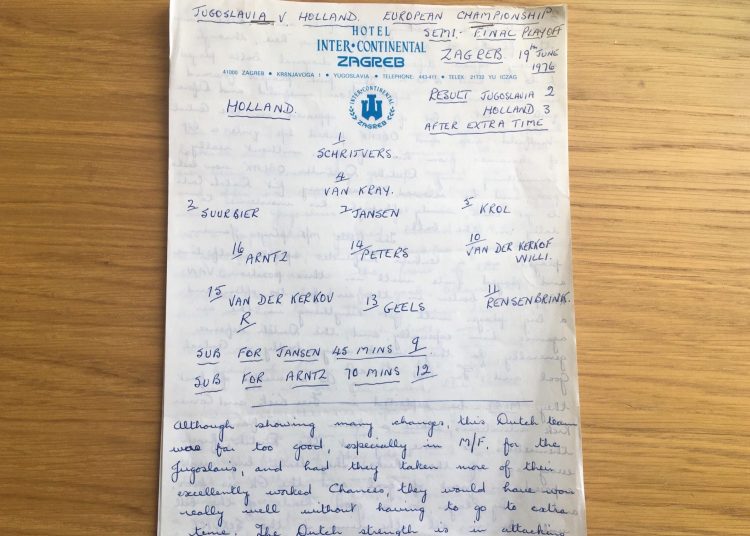 JUGOSLAVIA V. HOLLAND. EUROPEAN CHAMPIONSHIP
SEMI-FINAL PLAYOFF
ZAGREB 19th JUNE
1976
HOTEL
INTER•CONTINENTAL
ZAGREB
41000 ZAGREB • KRŠNJAVOGA 1 • YUGOSLAVIA • TELEPHONE: 443-411 • TELEX: 21733 YU ICZAG
INTER•CONTINENTAL
ZAGREB
RESULT JUGOSLAVIA 2
HOLLAND 3
AFTER EXTRA TIME
HOLLAND
1
SCHRIJVERS.
4
VAN KRAY.
3 SUURBIER 2 JANSEN 5 KROL
16 ARNTZ 14 PETERS 10 VAN DER KERKOF
WILLI.
15 VAN DER KERKOV 13 GEELS 11 RENSENBRINK.
R
SUB FOR JANSEN 45 MINS 9.
SUB FOR ARNTZ 70 MINS 12
Although showing many changes, this Dutch team
were far too good, especially in M/F. for the
Jugoslavis, and had they taken more of their
excellently worked Chances, they would have won
really well without having to go to extra
time. The Dutch strength is in attacking